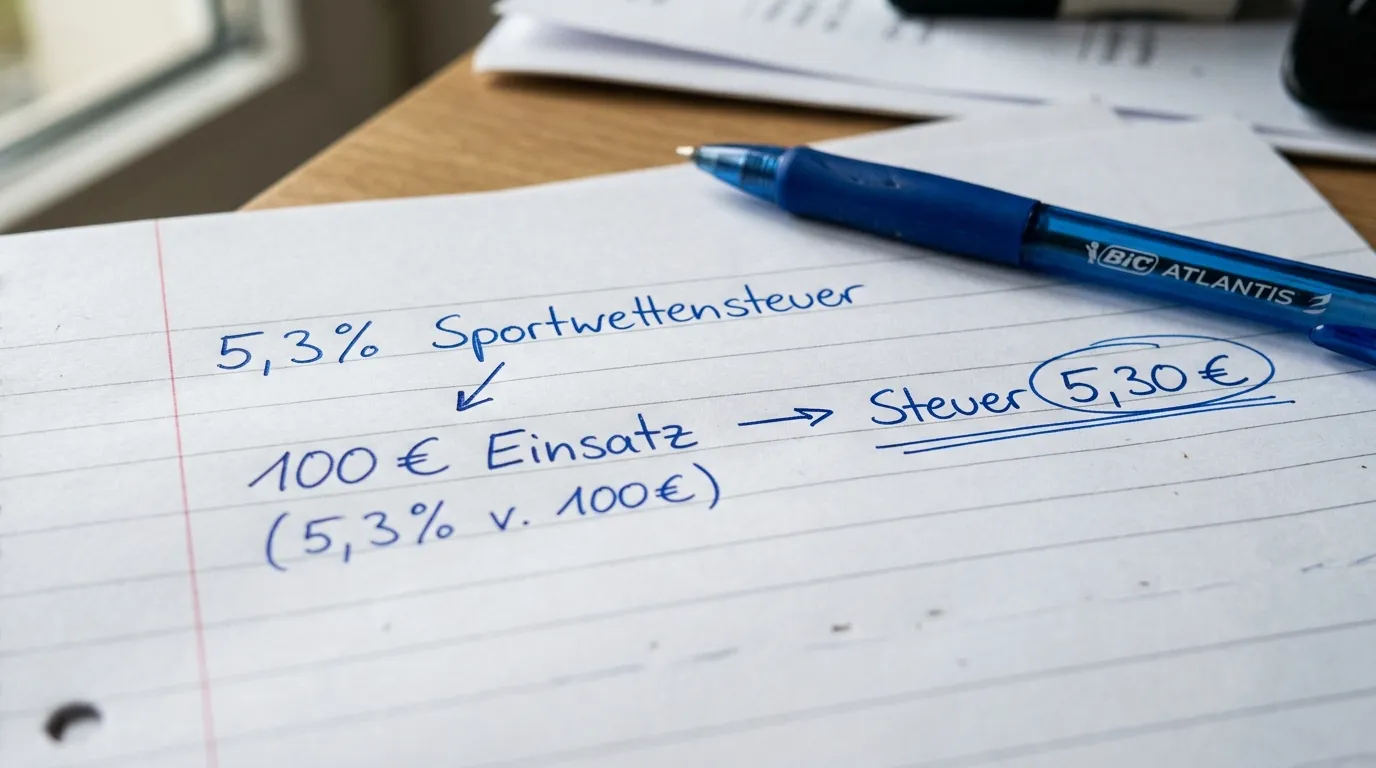 5,3% Sportwettensteuer
↙
100 € Einsatz → Steuer 5,30 €
(5,3% v. 100€)
BIC ATLANTIS